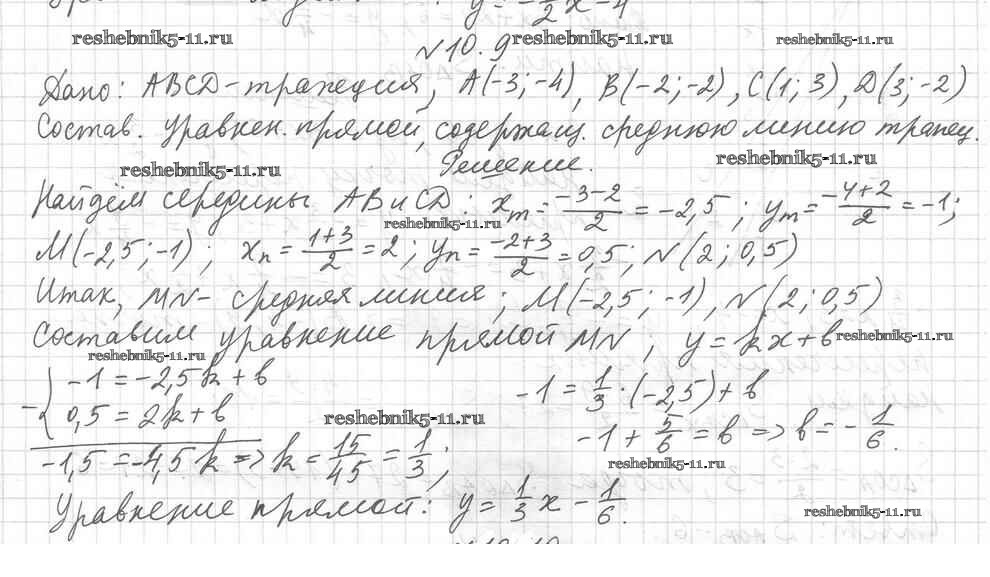 y = -1/2 x - 4
reshebnik5-11.ru
№10.9
reshebnik5-11.ru
reshebnik5-11.ru
Дано: ABCD-трапеция, A(-3;-4), B(-2;-2), C(1;3), D(3;-2)
Состав. уравнен. прямой, содержащ. среднюю линию трапец.
reshebnik5-11.ru
Решение.
reshebnik5-11.ru
Найдём середины AB и CD: xm = (-3-2)/2 = -2,5; ym = (-4+2)/2 = -1;
reshebnik5-11.ru
M(-2,5;-1); xn = (1+3)/2 = 2; yn = (-2+3)/2 = 0,5; N(2;0,5)
Итак, MN- средняя линия; M(-2,5;-1), N(2;0,5)
Составим уравнение прямой MN, y = kx+b
reshebnik5-11.ru
reshebnik5-11.ru
-1 = -2,5k+b
0,5 = 2k+b
reshebnik5-11.ru
-1,5 = -4,5k => k = 15/45 = 1/3;
-1 = 1/3·(-2,5)+b
-1 + 5/6 = b => b = -1/6.
reshebnik5-11.ru
Уравнение прямой: y = 1/3 x - 1/6.
reshebnik5-11.ru